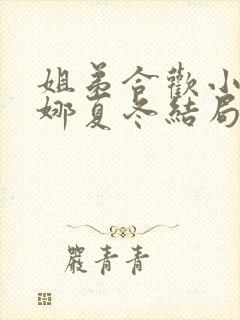 姐弟合歡小
娜夏冬結局
嚴青青